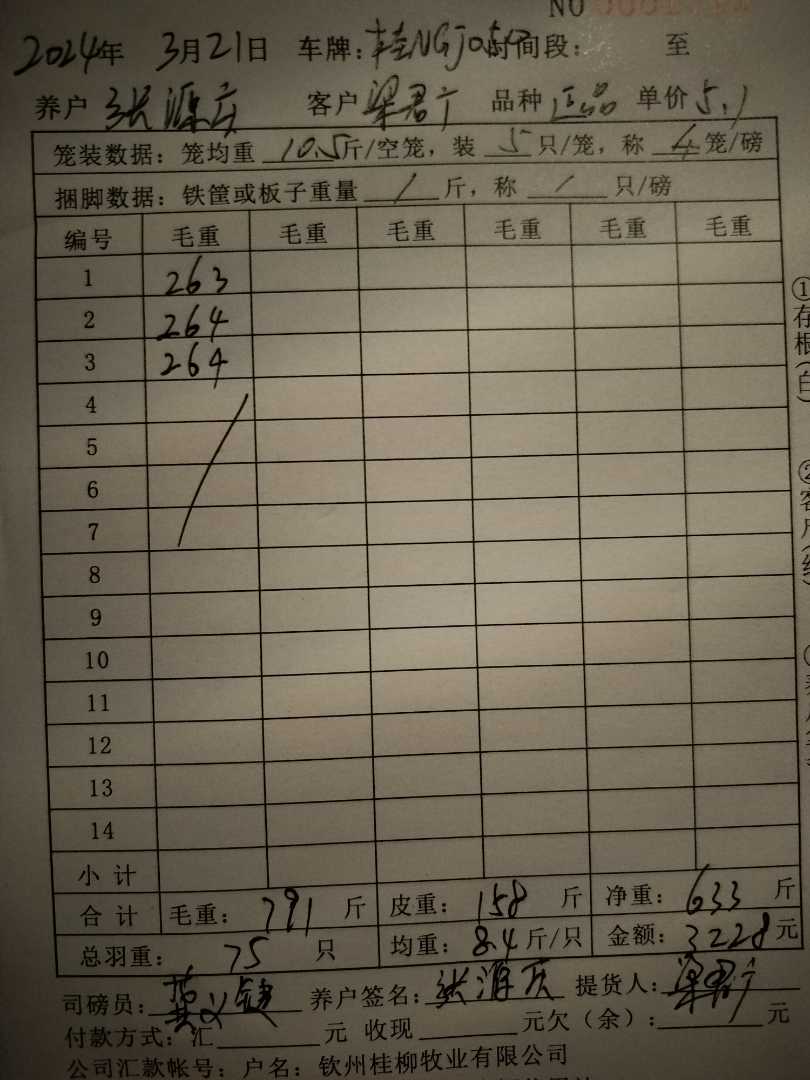 NO
2024年 3月21日 车牌:桂NGJ 时间段: 至
养户 张源庆 客户 梁君广 品种 正品 单价 5.1
笼装数据: 笼均重 10.5斤/空笼, 装 5 只/笼, 称 4 笼/磅
捆脚数据: 铁筐或板子重量 / 斤, 称 / 只/磅
编号 毛重 毛重 毛重 毛重 毛重 毛重
1 263
2 264
3 264
4
5
6
7
8
9
10
11
12
13
14
小计
合计 毛重: 791 斤 皮重: 158 斤 净重: 633 斤
总羽重: 75 只 均重: 8.4 斤/只 金额: 3228 元
司磅员: 养户签名: 张源庆 提货人: 梁君广
付款方式: 汇 元 收现 元欠(余): 元
公司汇款帐号: 户名: 钦州桂柳牧业有限公司
①存根(白)